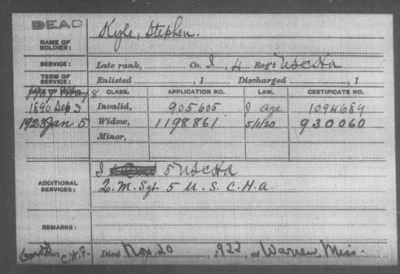 DEAD
NAME OF SOLDIER: Kyle, Stephen.
SERVICE: Late rank, Co. I, 4 Reg't USCHA
TERM OF SERVICE: Enlisted , 1 Discharged , 1
CLASS. APPLICATION NO. LAW. CERTIFICATE NO.
1890 Sep 3 Invalid, 905605 1094689
1923 Jan 5 Widow, 1198861 5/1/20 930060
Minor,
ADDITIONAL SERVICES: I 5 USCHA
Q. M. Sgt 5 U. S. C. H. A.
REMARKS:
Died Nov. 20, 1922, at Warren, Miss.